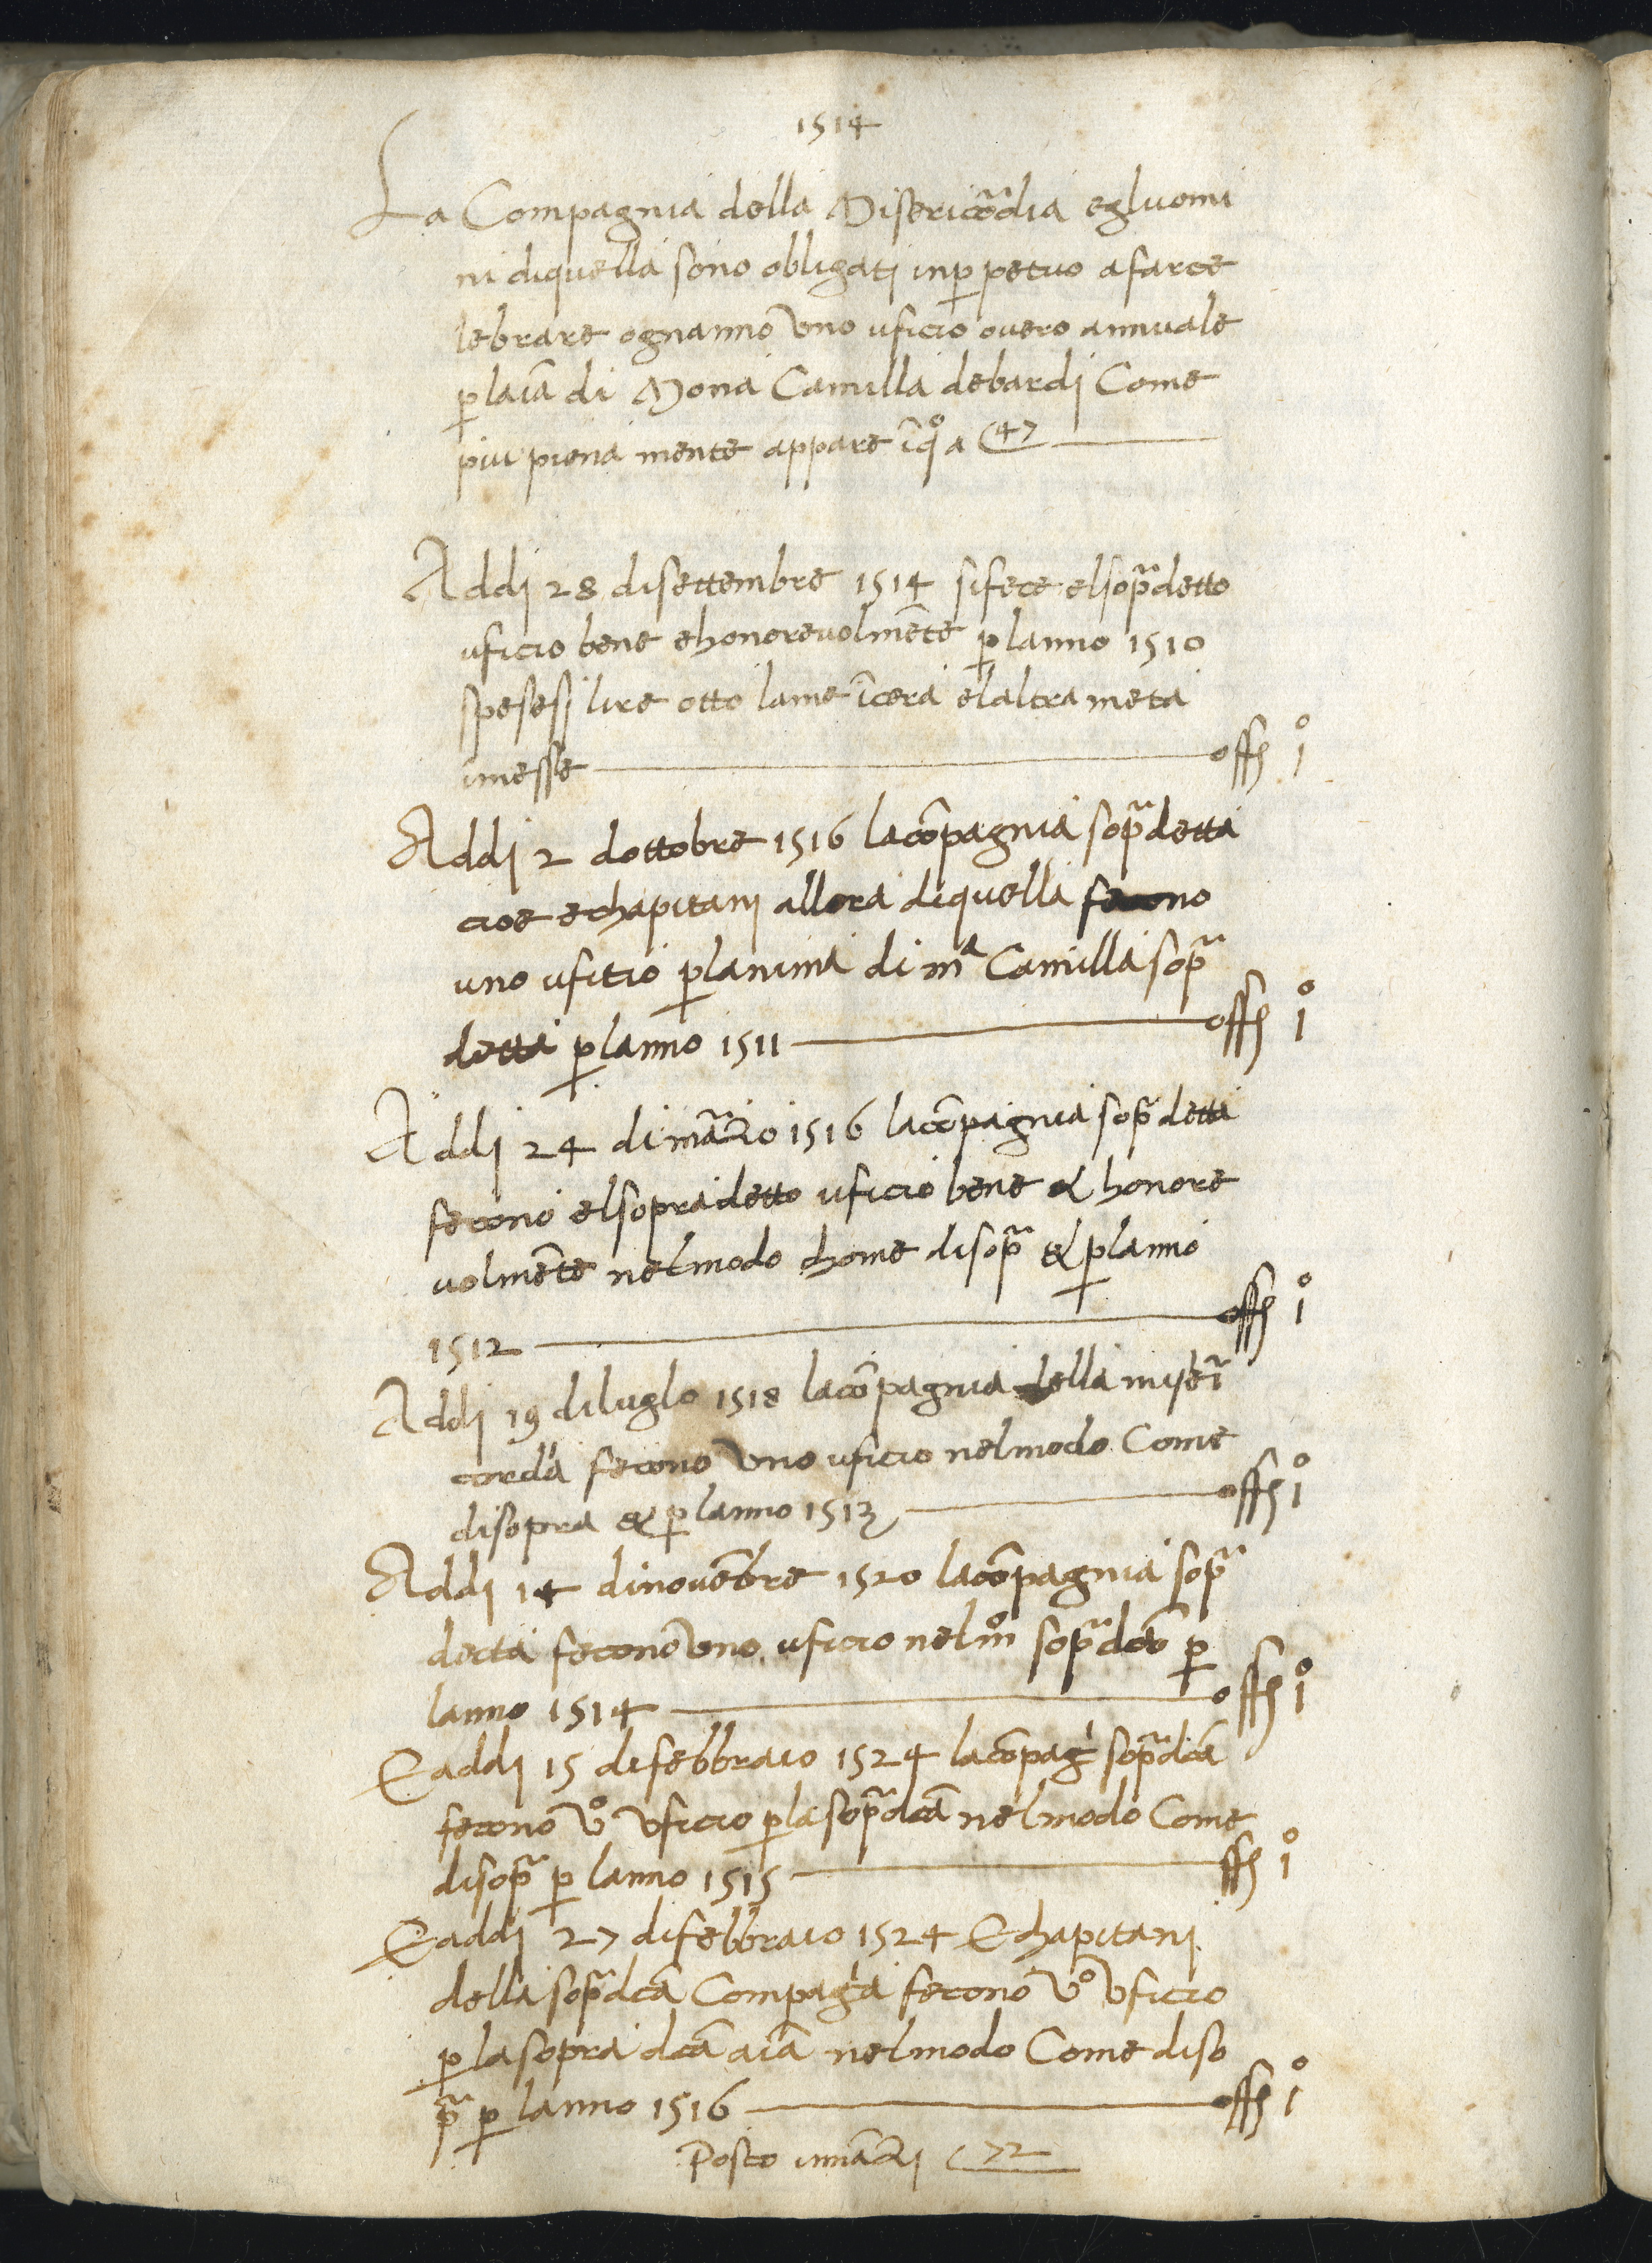 1514
La Compagnia della Misericõrdia egluomi
ni diquella sono obligati inp̱petuo afarce
lebrare ognanno uno uficio overo annuale
p̱ laĩa di Mona Camilla debardi Come
piu piena mente appare ĩqº a C 47
Addi 28 disettembre 1514 sifece elsop̃detto
uficio bene ehonorevolmẽte p̱ lanno 1510
spesesj lire otto lame ĩcera elaltra meta
imesse offº j º
Addi 2 dottobre 1516 lacõpagnia sop̃detta
cioe echapitanj allora diquella feceno
uno ufitio p̱lanima di mª Camilla sop̃
detta p̱ lanno 1511 offº j º
Addi 24 dimãrzo 1516 lacõpagnia sop̃detta
feceno elsopradetto uficio bene & honore
volmẽte nelmodo chome disop̃ & p̱ lanno
1512 offº j º
Addi 19 diluglo 1518 lacõpagnia della miseri
cordia feceno uno uficio nelmodo Come
disopra & p̱ lanno 1513 offº j º
Addi 14 dinovẽbre 1520 lacõpagnia sop̃
detta feceno uno uficio nelmº sop̃dcõ p̱
lanno 1514 offº j º
E addi 15 difebbraio 1524 lacõpagª sop̃dcã
feceno vº vficio p̱lasop̃dcã nelmodo Come
disop̃ p̱ lanno 1515 ffº j º
E addi 27 difebbraio 1524 E chapitanj
della sop̃dcã Compagª feceno vº vficio
p̱ lasopra dcã aĩa nelmodo Come diso
p̃ p̱ lanno 1516 offº j º
Posto inãzi C 72